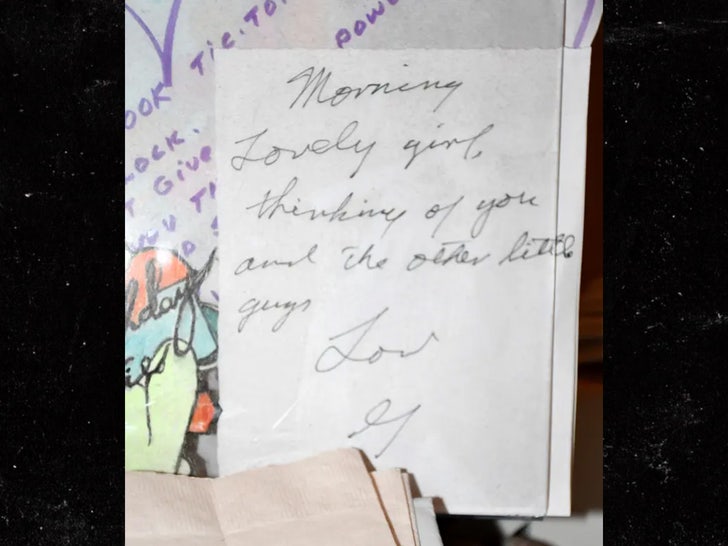 TIC.TO
POW
OOK
OCK.
GIVE
hday
Morning
Lovely girl,
thinking of you
and the other little
guys
Lov